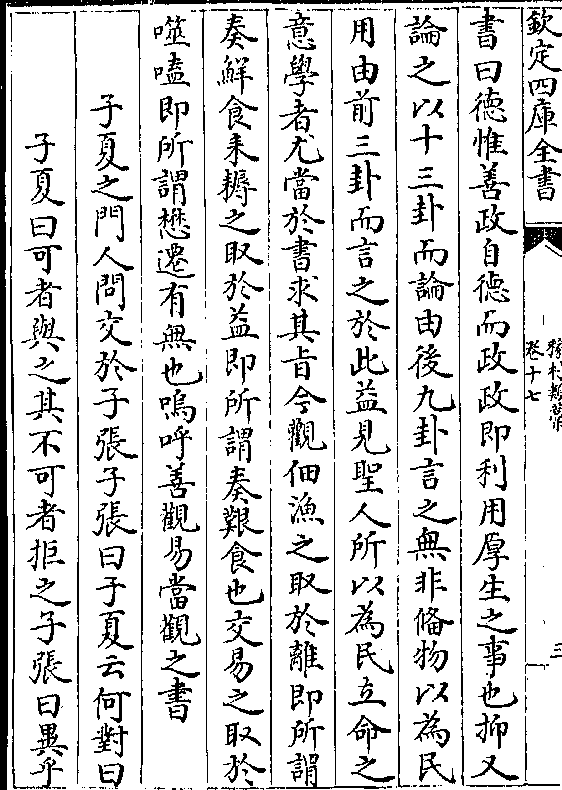 欽定四庫全書
豫章類藁
卷十七
三
書曰德惟善政自德而政政即利用厚生之事也抑又
論之以十三卦而論由後九卦言之無非偹物以為民
用由前三卦而言之於此益見聖人所以為民立命之
意學者尤當於書求其旨今觀佃漁之取於離即所謂
奏鮮食耒耨之取於益即所謂奏艱食也交易之取於
噬嗑即所謂懋遷有無也嗚呼善觀易當觀之書
子夏之門人問交於子張子張曰子夏云何對曰
子夏曰可者與之其不可者拒之子張曰異乎